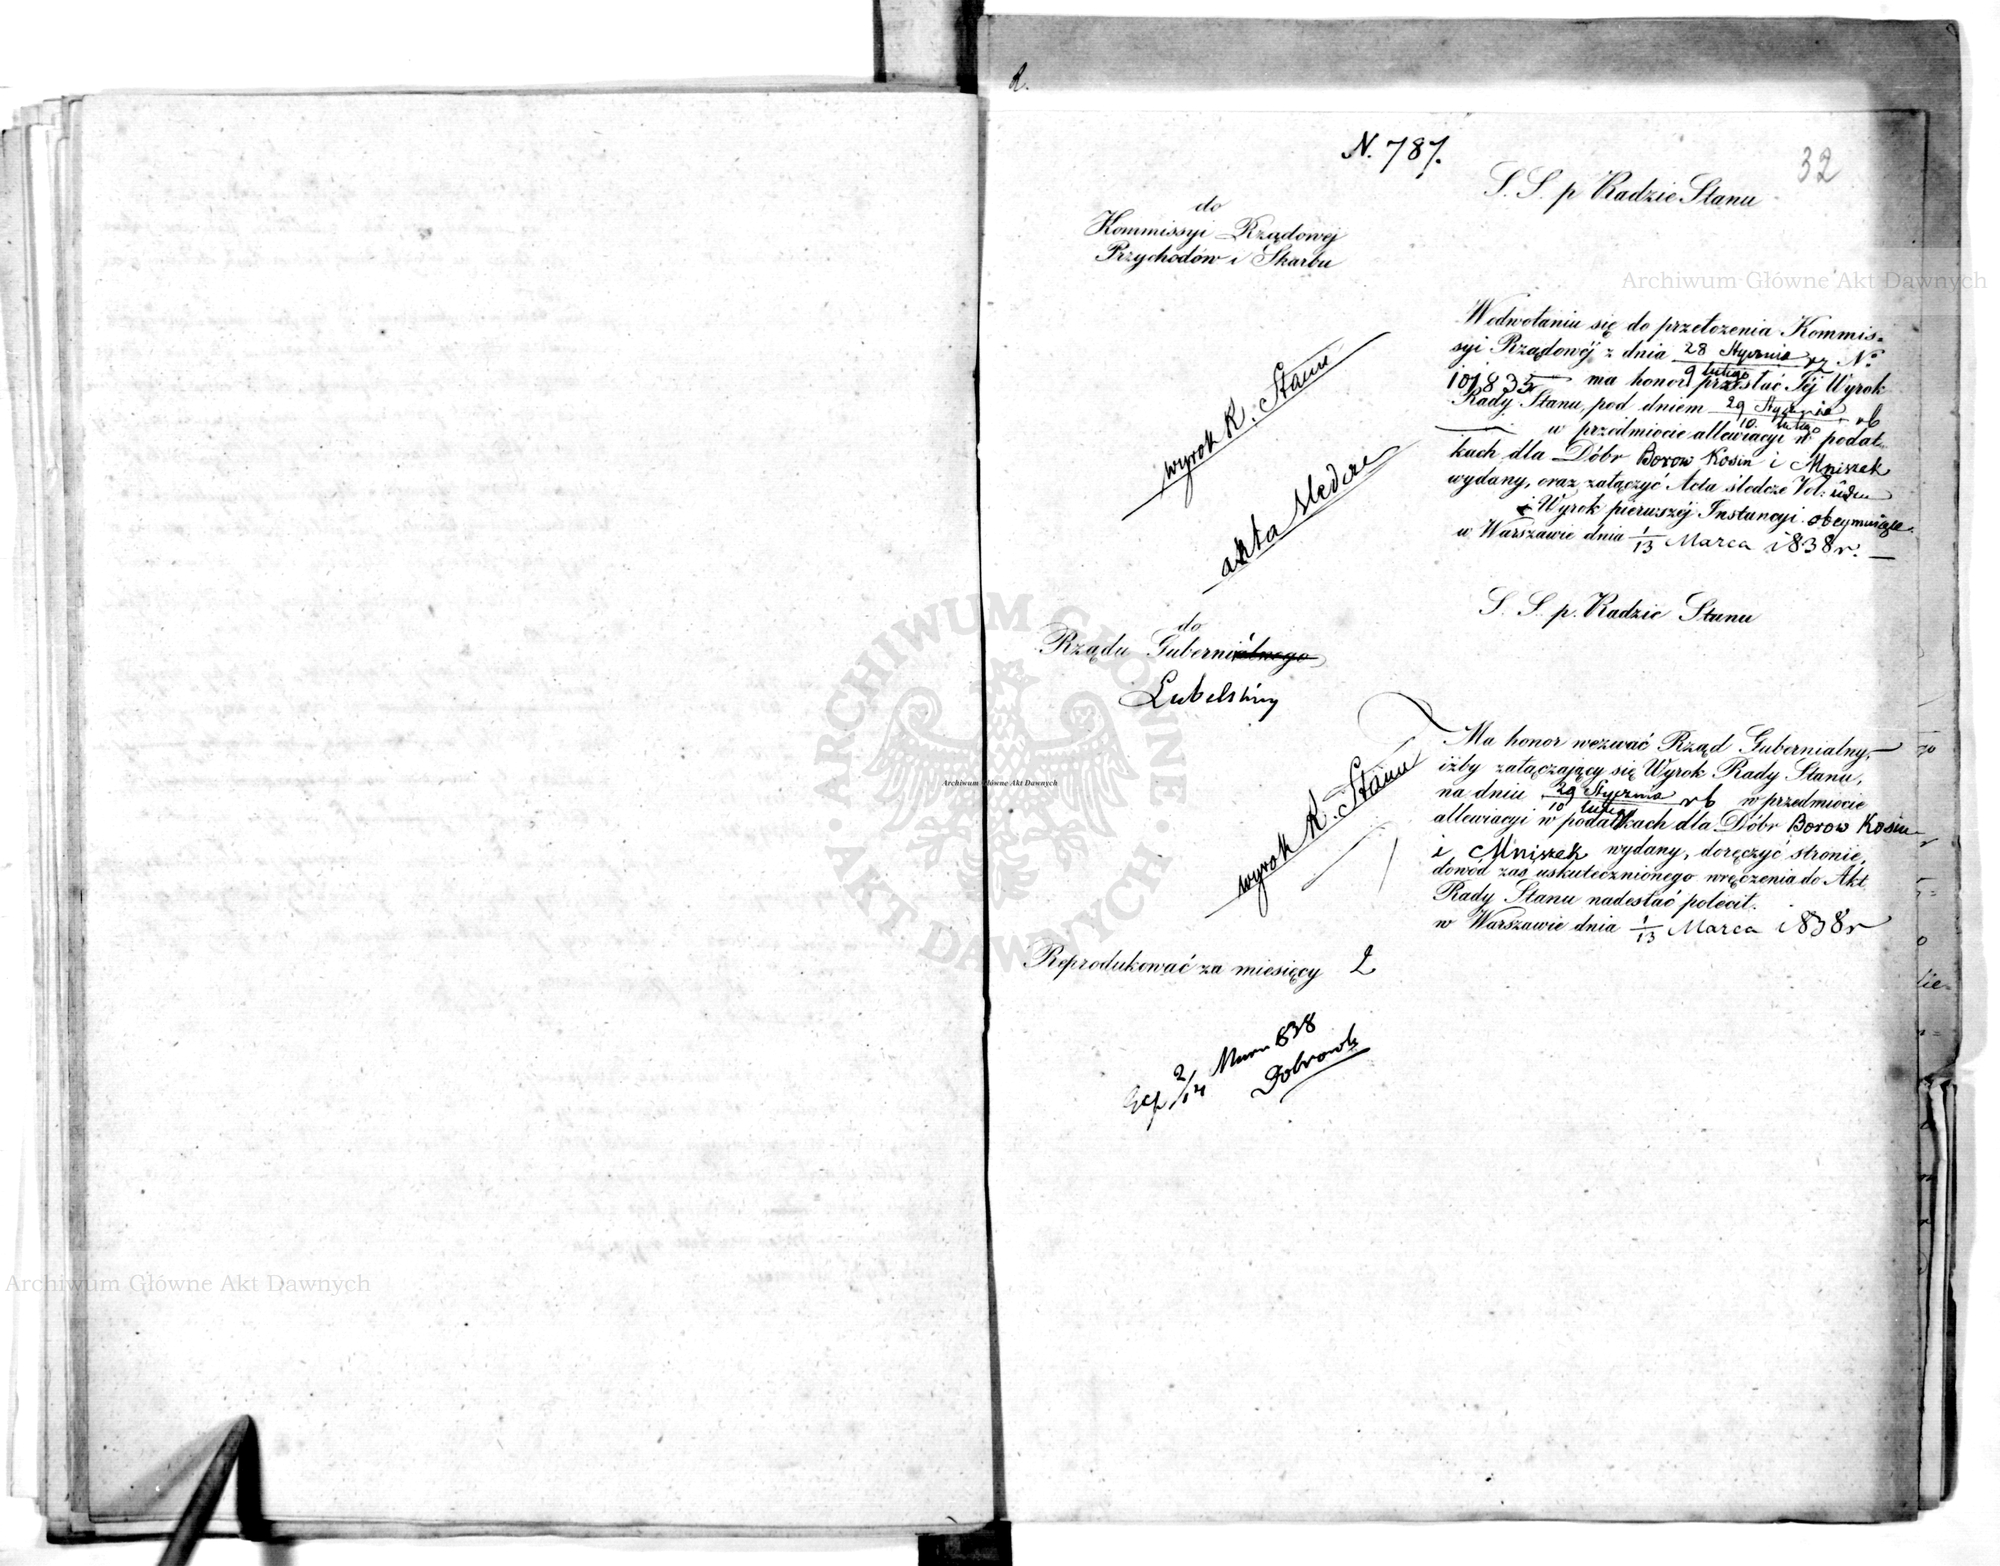 R.
N. 787.
32
S. S. p Radzie Stanu
do
Kommissyi Rządowej
Przychodów i Skarbu
Wodwołaniu się do przełożenia Kommis=
syi Rządowéj z dnia 28 Stycznia / 9 Lutego rz No
101835 ma honor przesłać Téj Wyrok
Rady Stanu pod dniem 29 Stycznia / 10 Lutego rb
w przedmiocie allewiacyi w podat=
kach dla Dóbr Borow Kosin i Mniszek
wydany, oraz załączyć Acta śledcze Vol:
i Wyrok pierwszej Instancyi obeymujące.
w Warszawie dnia 1/13 Marca 1838 r.
wyrok R. Stanu
akta śledcze
S. S. p. Radzie Stanu
do
Rządu Gubernialnego
Lubelskiey
Ma honor wezwać Rząd Gubernialny,
iżby załączający się Wyrok Rady Stanu,
na dniu 29 Stycznia / 10 Lutego rb w przedmiocie
allewiacyi w podatkach dla Dóbr Borow Kosin
i Mniszek wydany, doręczyć stronie,
dowód zaś uskutecznionego wręczenia do Akt
Rady Stanu nadesłać polecił.
w Warszawie dnia 1/13 Marca 1838 r
wyrok R. Stanu
Reprodukować za miesięcy 2
2/14 Marca 838
Archiwum Główne Akt Dawnych
Archiwum Główne Akt Dawnych
Archiwum Główne Akt Dawnych
ARCHIWUM GŁÓWNE AKT DAWNYCH